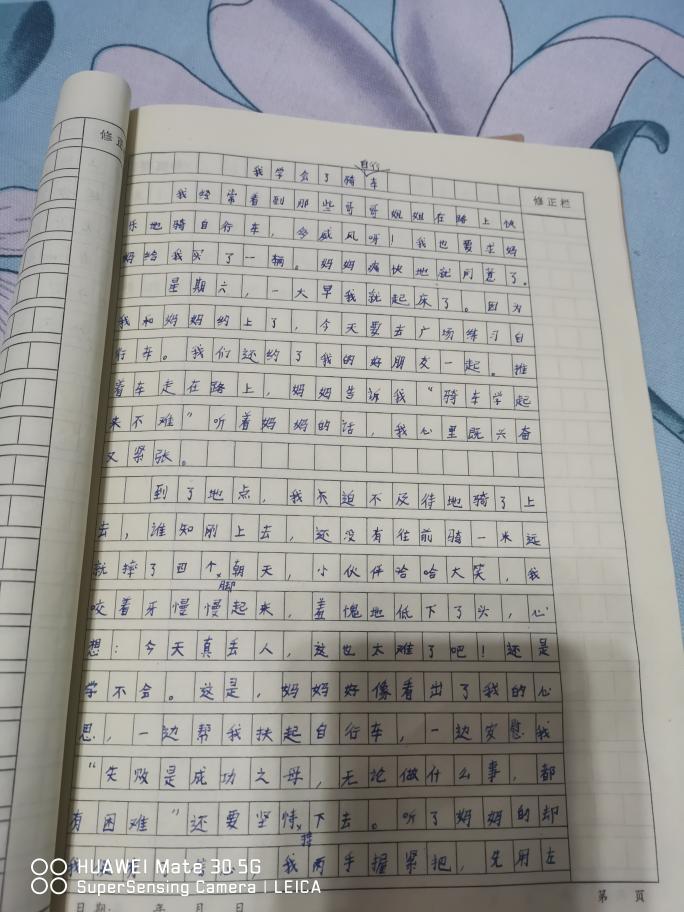 修正
自行
我学会了骑车
修正栏
我经常看到那些哥哥姐姐在路上快
乐地骑自行车，令威风呀！我也要求妈
妈给我买了一辆。妈妈痛快地就同意了。
星期六，一大早我就起床了。因为
我和妈妈约上了，今天要去广场练习自
行车。我们还约了我的好朋友一起。推
着车走在路上，妈妈告诉我“骑车学起
来不难”听着妈妈的话，我心里既兴奋
又紧张。
到了地点，我不迫不及待地骑了上
去，谁知刚上去，还没有往前骑一米远
就摔了四个朝天，小伙伴哈哈大笑，我
脚
咬着牙慢慢起来，羞愧地低下了头，心
想：今天真丢人，这也太难了吧！还是
学不会。这是，妈妈好像看出了我的心
思，一边帮我扶起自行车，一边安慰我
“失败是成功之母，无论做什么事，都
有困难”还要坚恃下去。听了妈妈的却
持
我 心，我两手握紧把，先用左
日期： 年 月 日
第 页
HUAWEI Mate 30 5G
SuperSensing Camera | LEICA